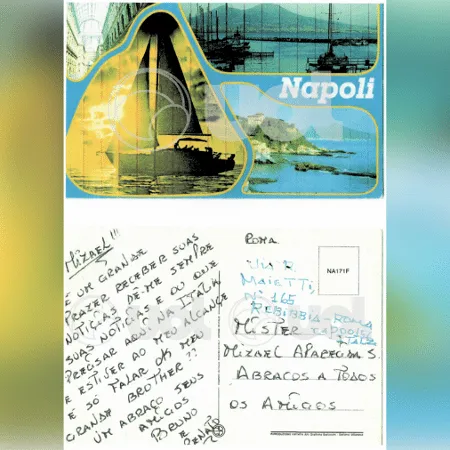 Napoli
MIZAEL!!!
É UM GRANDE
PRAZER RECEBER SUAS
NOTÍCIAS DE-ME SEMPRE
SUAS NOTÍCIAS E OU QUE
PRECISAR AQUI NA ITALIA
E ESTIVER AO MEU ALCANCE
E SÓ FALAR OK MEU
GRANDE BROTHER??
UM ABRAÇO SEUS
AMIGOS
BRUNO
E
RENATO
ROMA
NA171F
VIA R
MAIETTI
Nº 165
REBIBBIA-ROMA
ITALIA
MISTER
MIZAEL APARECIDA S.
ABRAÇOS A TODOS
OS AMIGOS